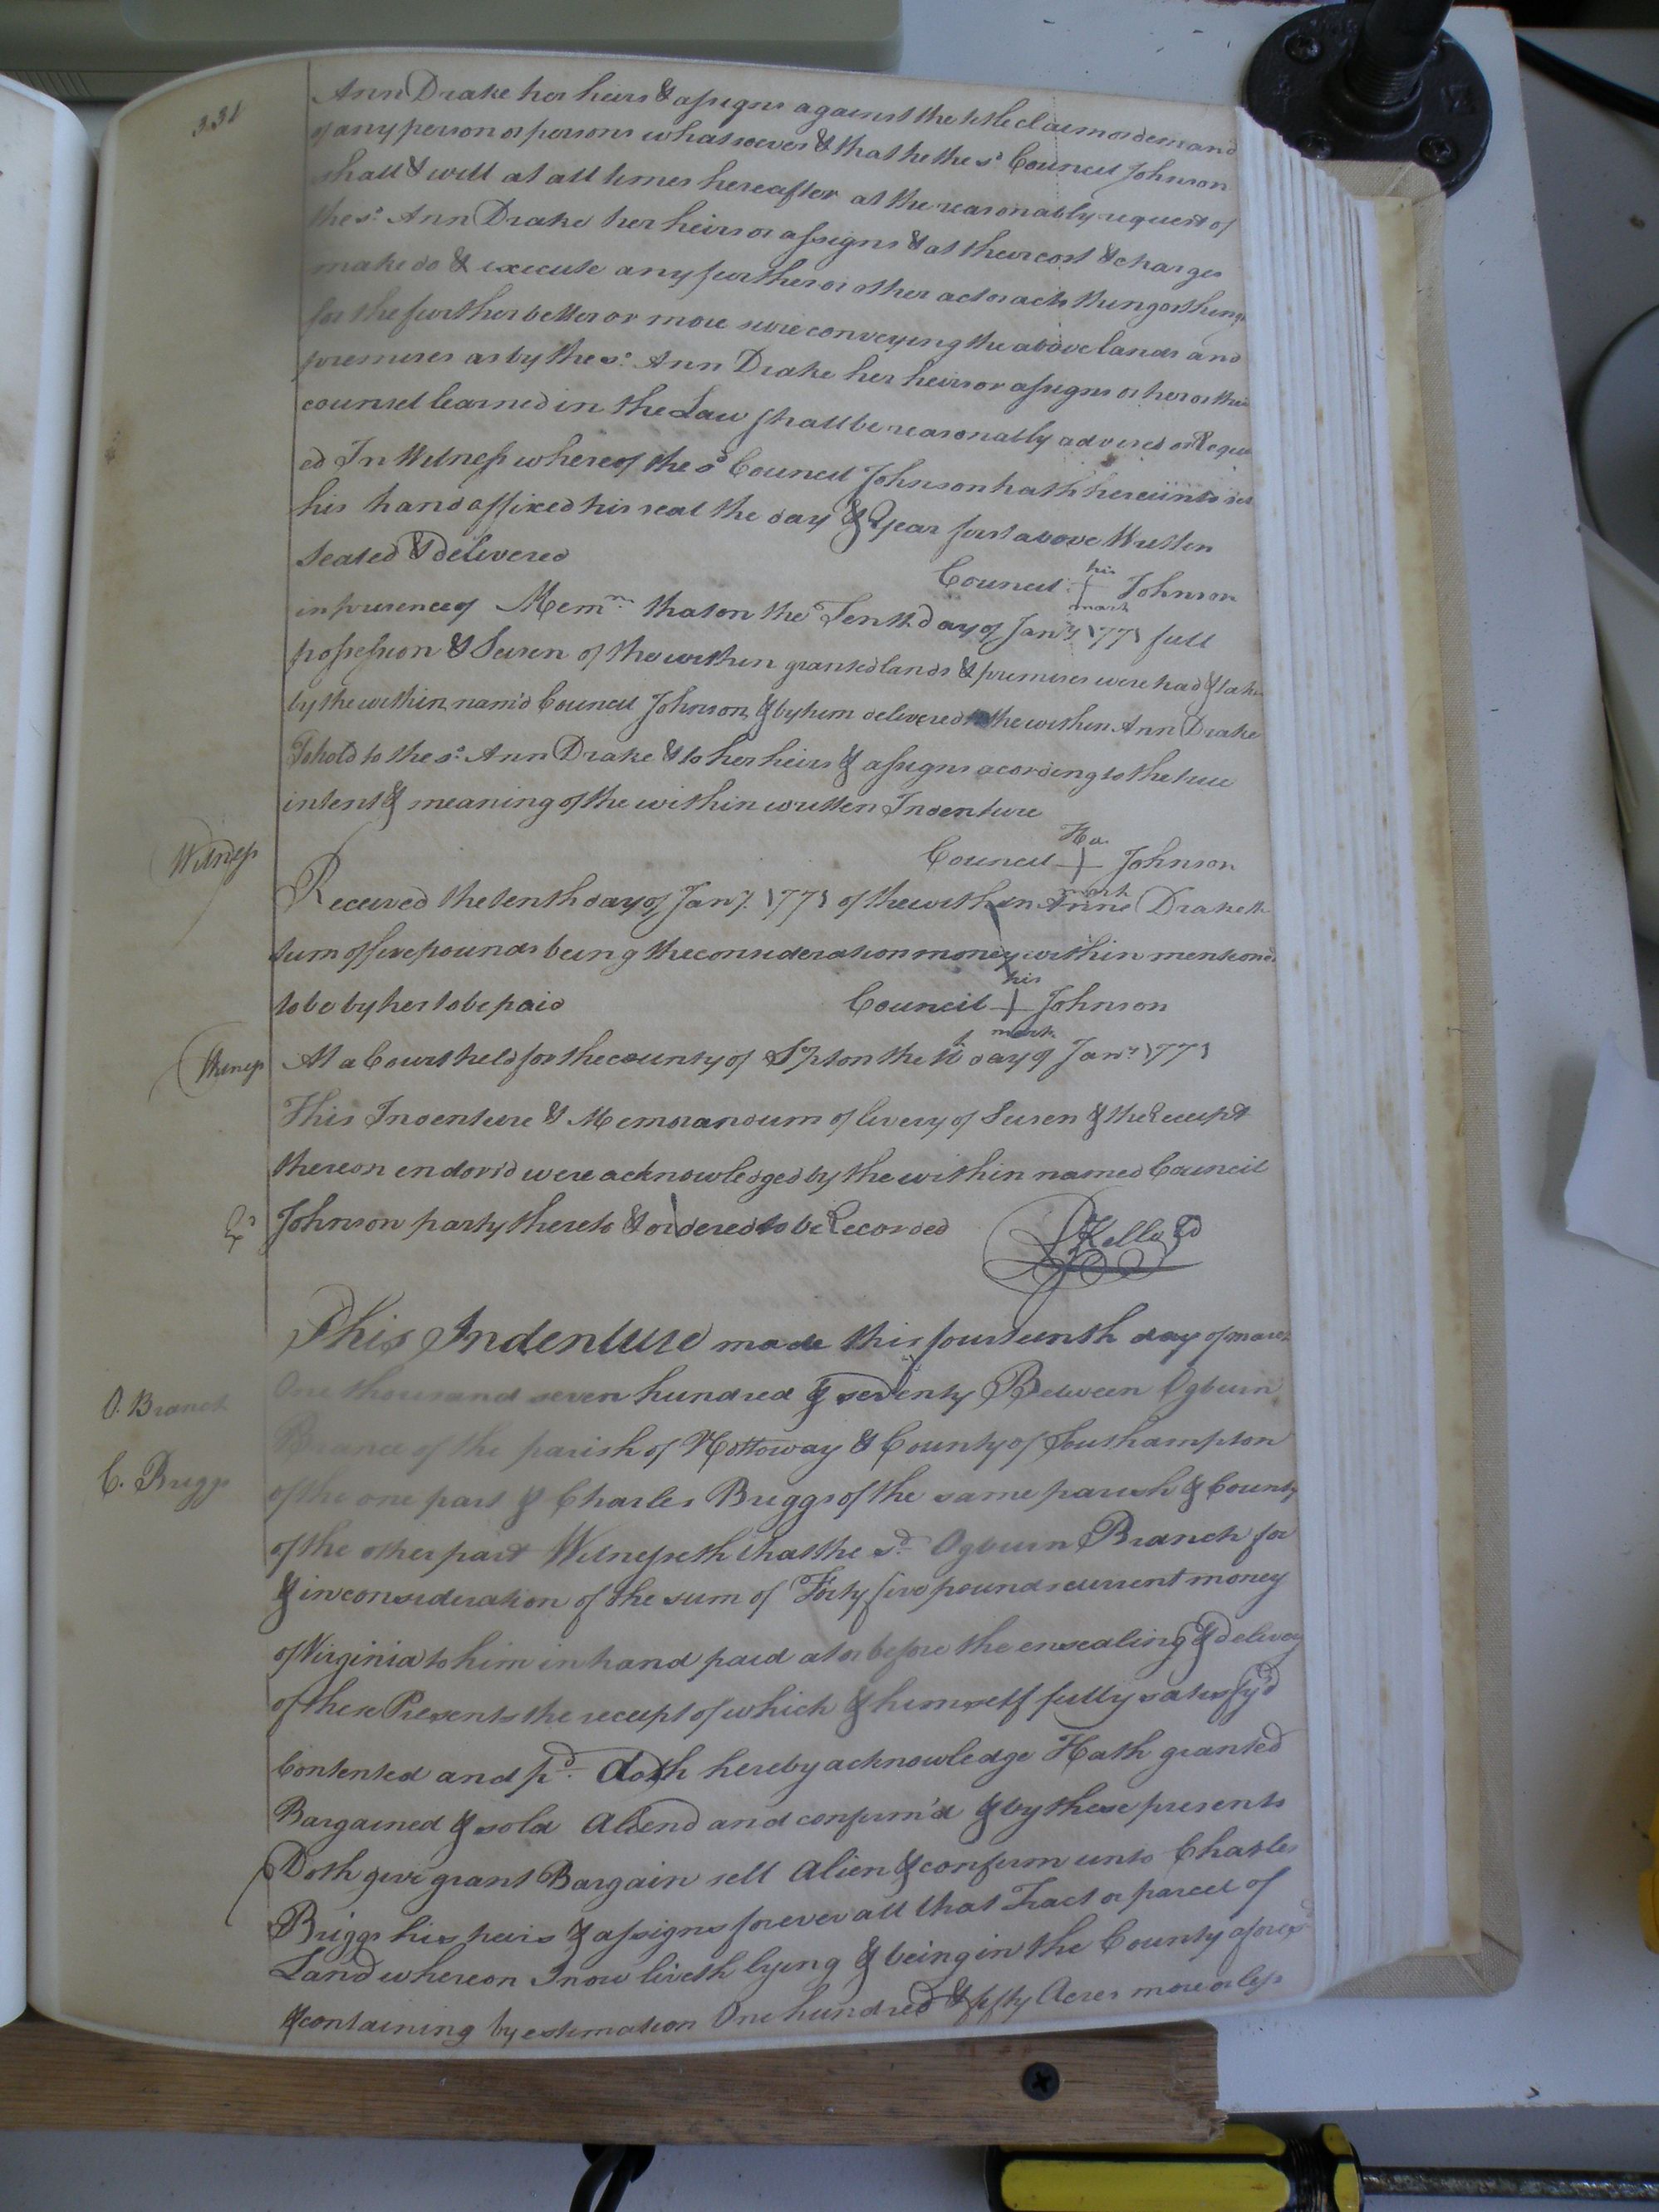 331
Ann Drake her heirs & assigns against the title claim or demand
of any person or persons whatsoever & that he the sd Council Johnson
shall & will at all times hereafter at the reasonably request of
the sd. Ann Drake her heirs or assigns & at their cost & charges
make do & execute any further or other act or acts thing or things
for the further better or more sure conveying the above lands and
premises as by the sd. Ann Drake her heirs or assigns or her or their
counsel learned in the Law shall be reasonably advised or Requir
ed In Witness whereof the sd Council Johnson hath hereunto set
his hand affixed his seal the day & Year first above Written
Sealed & delivered
Council his mark Johnson
in presence of Memm. that on the Tenth day of Jany 1771 full
possession & Seisen of the within granted lands & premises were had & taken
by the within nam'd Council Johnson & by him delivered to the within Ann Drake
To hold to the sd. Ann Drake & to her heirs & assigns acording to the true
intent & meaning of the within written Indenture
Witness
Council mark Johnson
Received the tenth day of Jany. 1771 of the within Anne Drake the
sum of five pounds being the consideration money within mentioned
to be by her to be paid Council his mark Johnson
Witness
At a Court held for the county of Spton the 10 day of Jany 1771
This Indenture & Memorandum of livery of Seisen & the Receipt
thereon endors'd were acknowledged by the within named Council
Exd
Johnson party thereto & ordered to be Recorded
Kello
This Indenture made this fourteenth day of march
O. Branch
One thousand seven hundred & seventy Between Ogburn
Brance of the parish of Nottoway & County of Southampton
C. Briggs
of the one part & Charles Briggs of the same parish & County
of the other part Witnesseth that the sd. Ogburn Branch for
& in consideration of the sum of Forty five pounds current money
of Virginia to him in hand paid at or before the ensealing & delivery
of these Presents the receipt of which & himself fully satisfy'd
Contented and pd. doth hereby acknowledge Hath granted
Bargained & sold Aliend and confirm'd & by these presents
Doth give grant Bargain sell Alien & confirm unto Charles
Briggs his heirs & assigns forever all that Tract or parcel of
Land whereon I now liveth lying & being in the County aforesd
& containing by estimation One hundred & fifty Acres more or less